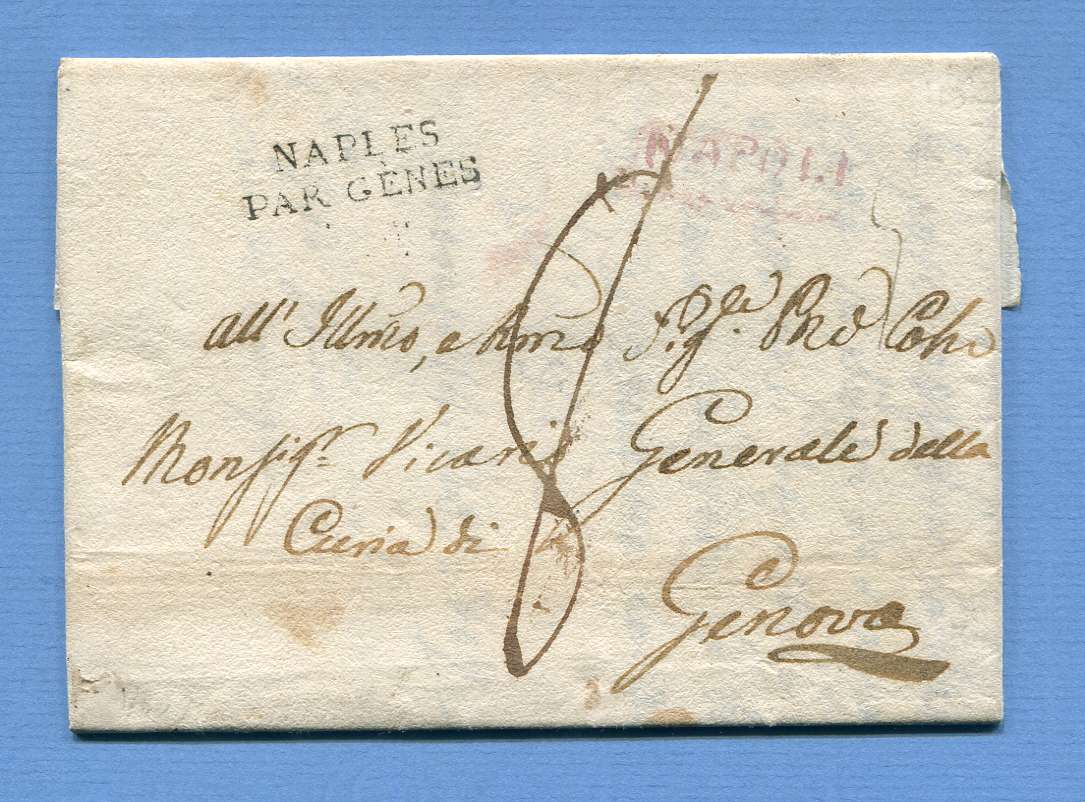 NAPLES
PAR GÈNES
NAPOLI
8
all' Illmo, e Rmo Sig.e
Monsigr. Vicario Generale della
Curia di
Genova